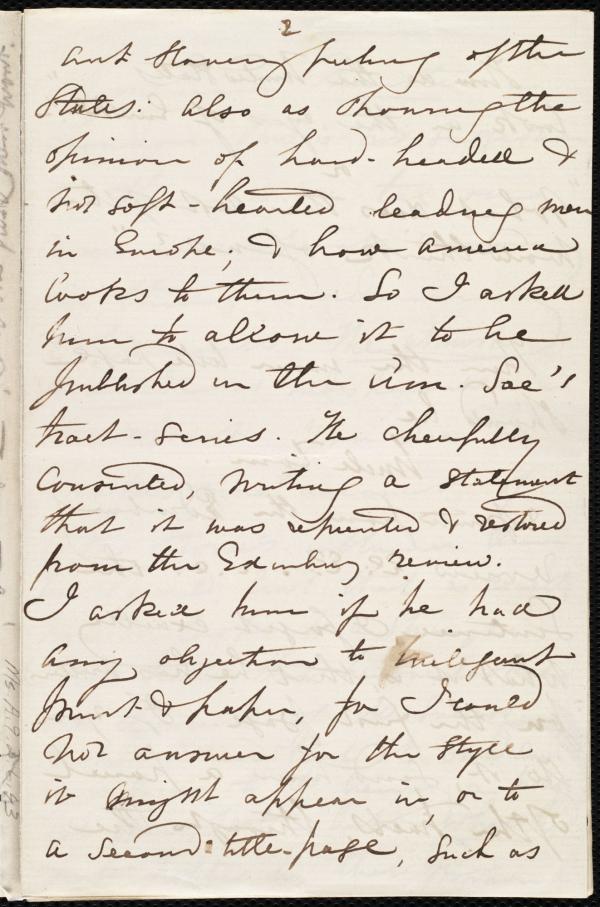 2
anti Slavery feeling of the
States: also as showing the
opinion of hard-headed &
not soft-hearted leading men
in Europe; & how America
looks to them. So I asked
him to allow it to be
published in the Am. Soc's
tract-series. He cheerfully
consented, writing a statement
that it was reprinted & restored
from the Edinburg review.
I asked him if he had
any objection to inelegant
print & paper, for I could
not answer for the style
it might appear in, or to
a second title-page, such as
Ms. A.9.2